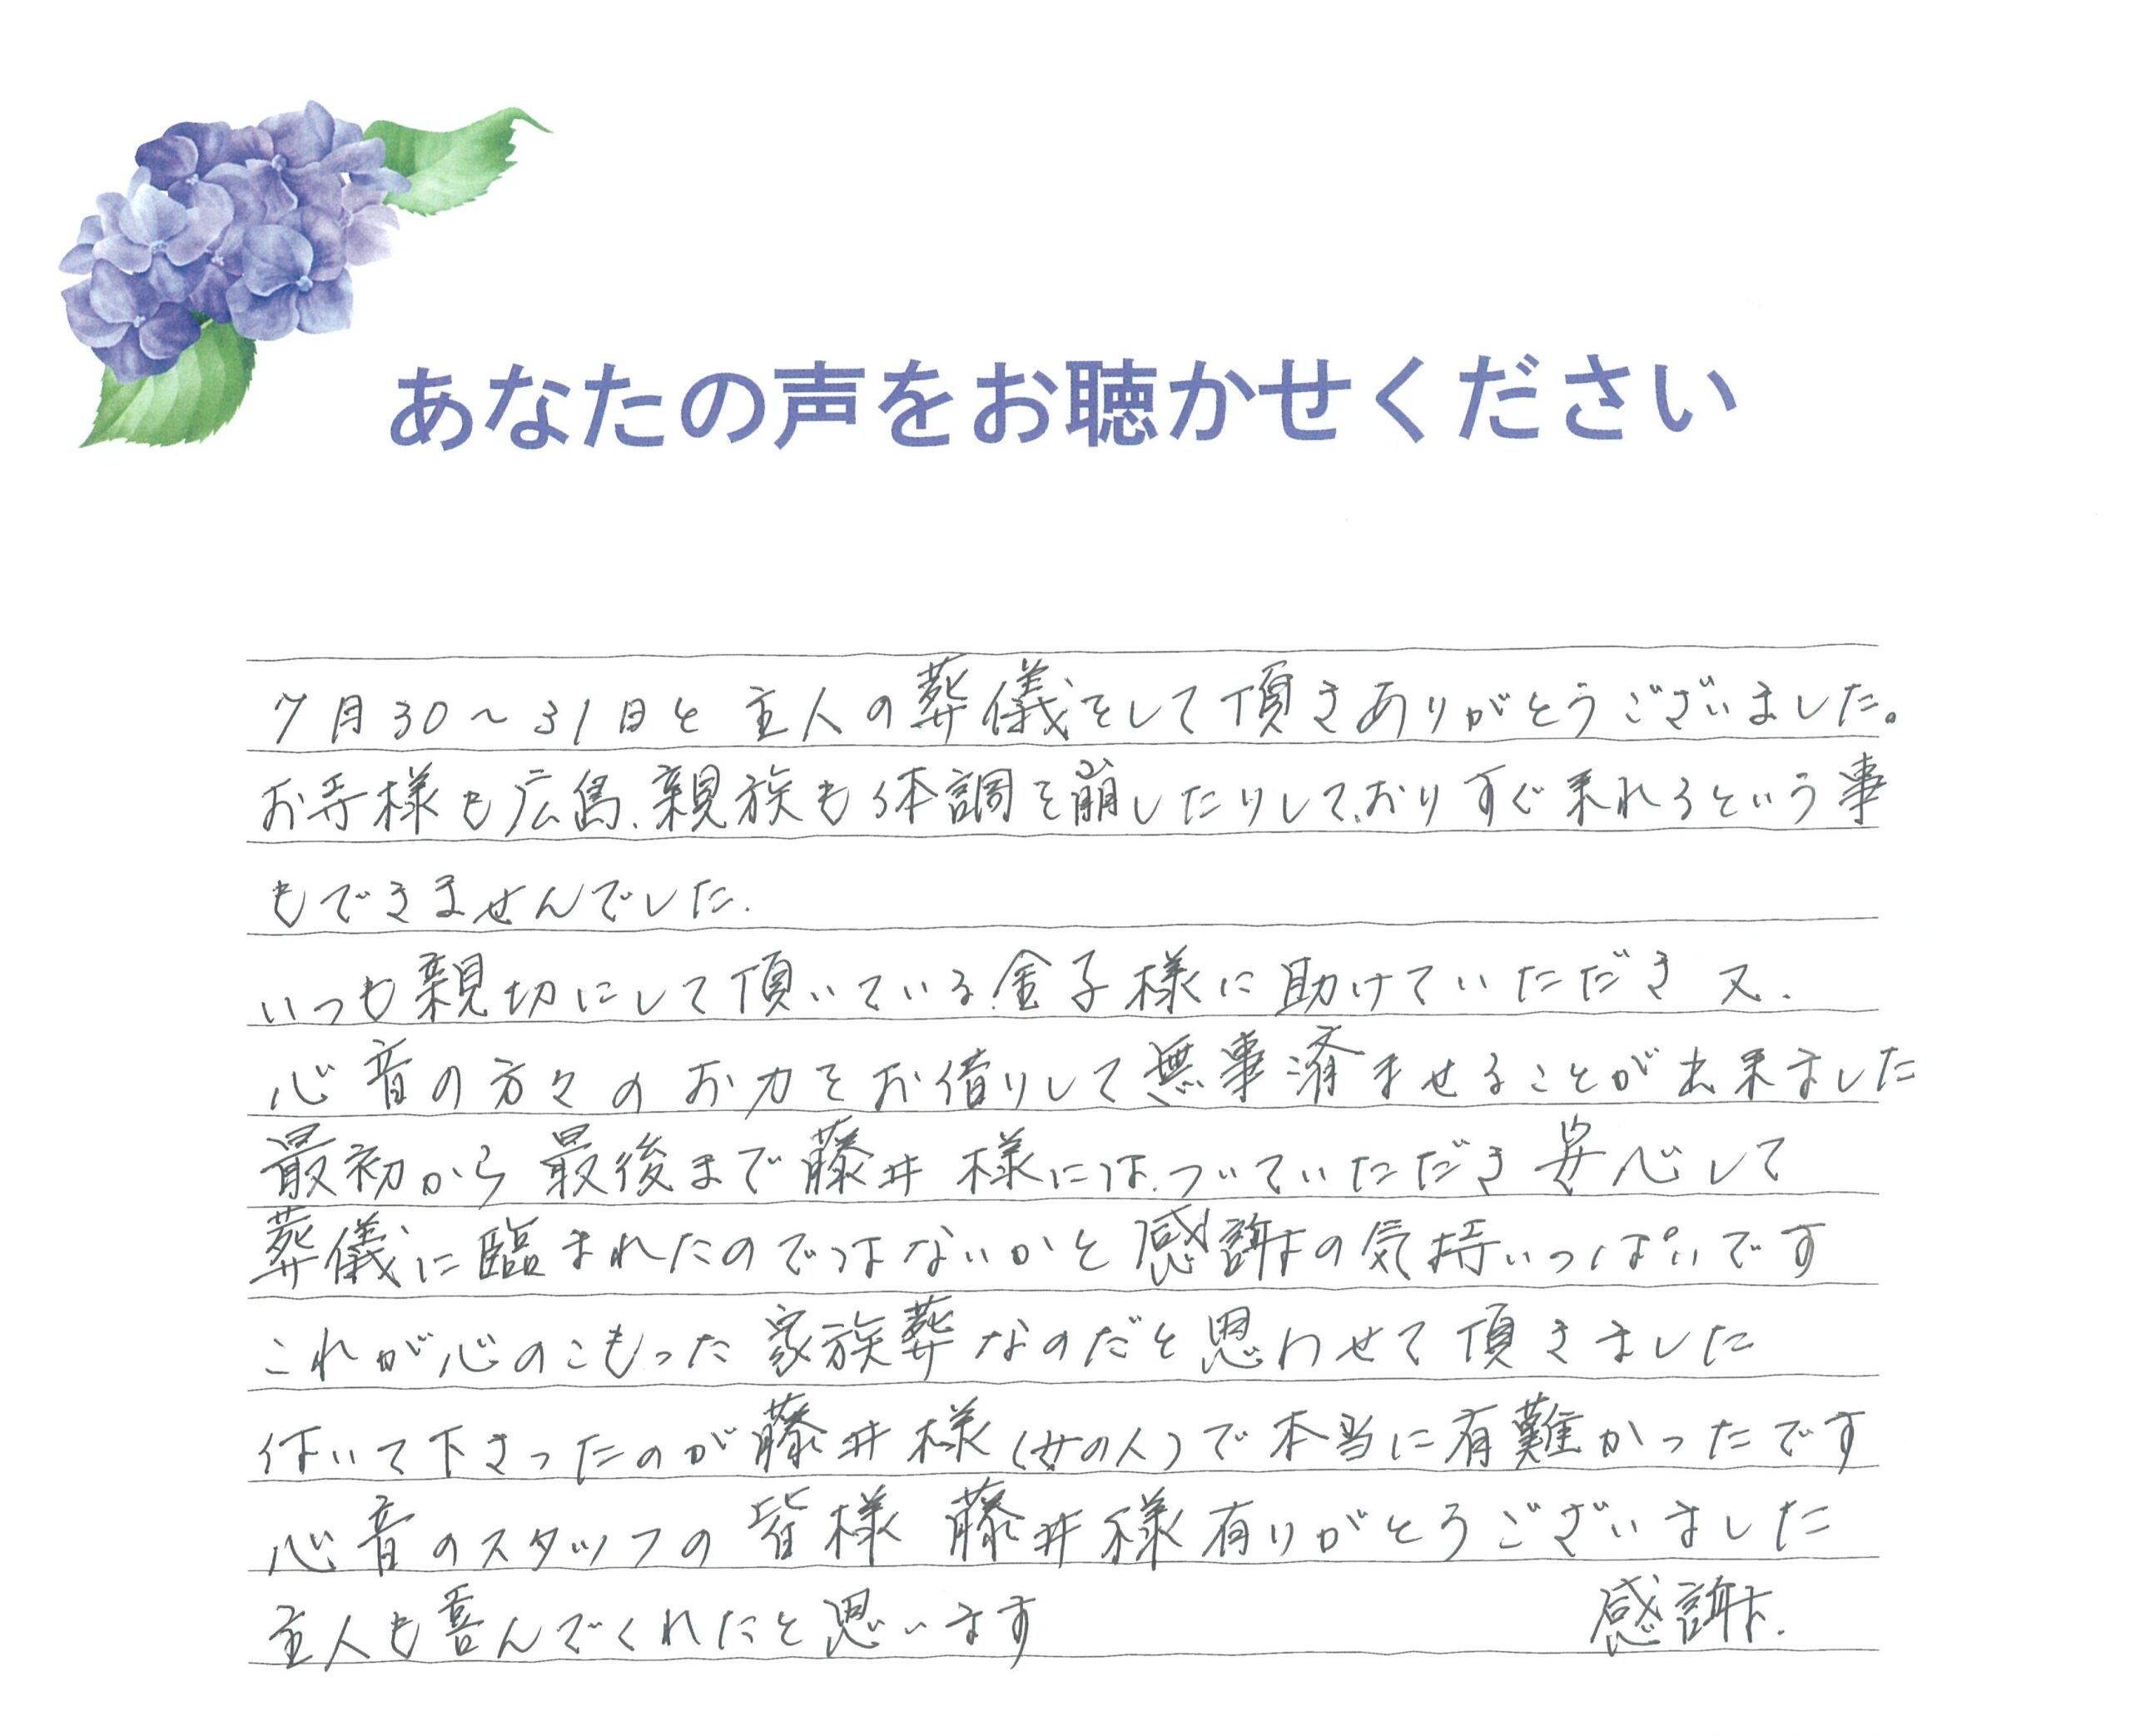 あなたの声をお聴かせください
7月30～31日と主人の葬儀をして頂きありがとうございました。
お寺様も広島、親族も体調を崩したりしており すぐ来れるという事
もできませんでした.
いつも親切にして頂いている金子様に助けていただき 又.
心音の方々のお力をお借りして無事済ませることが出来ました
最初から最後まで藤井様には、ついていただき安心して
葬儀に臨まれたのではないかと感謝の気持いっぱいです
これが心のこもった家族葬なのだと思わせて頂きました
付いて下さったのが藤井様(女の人)で本当に有難かったです
心音のスタッフの皆様 藤井様有りがとうございました
主人も喜んでくれたと思います 感謝.